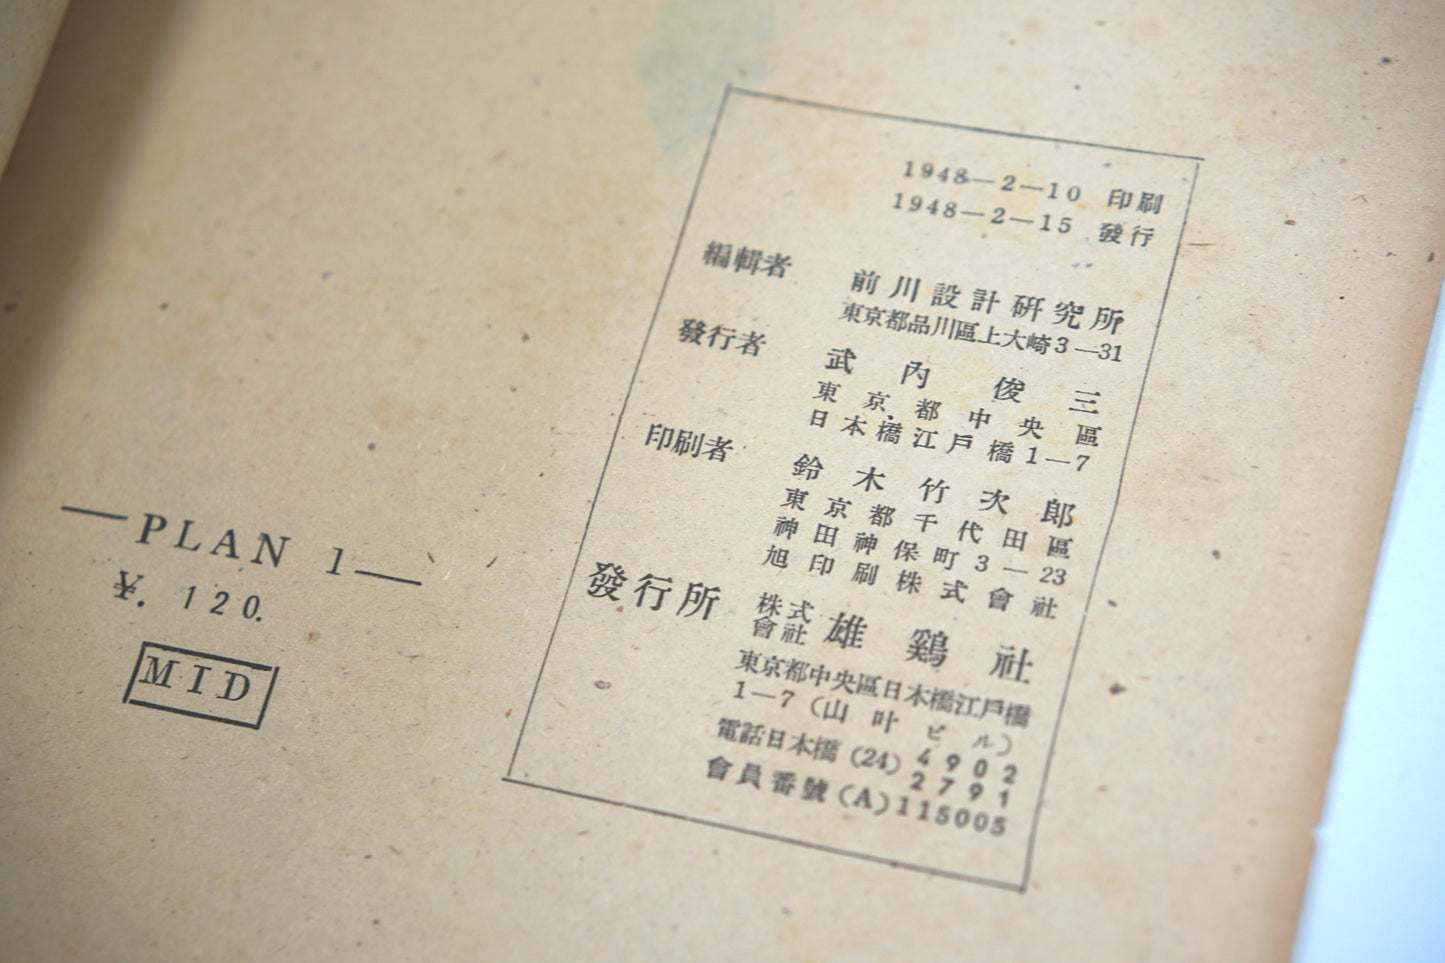 —PLAN 1—
¥. 120.
MID
1948—2—10 印刷
1948—2—15 發行
編輯者 前川設計研究所
東京都品川區上大崎3—31
發行者 武内俊三
東京都中央區
日本橋江戸橋1—7
印刷者 鈴木竹次郎
東京都千代田區
神田神保町3—23
旭印刷株式會社
發行所 株式會社 雄鷄社
東京都中央區日本橋江戸橋
1—7(山叶ビル)
電話日本橋(24)4902
2791
會員番號(A)115005